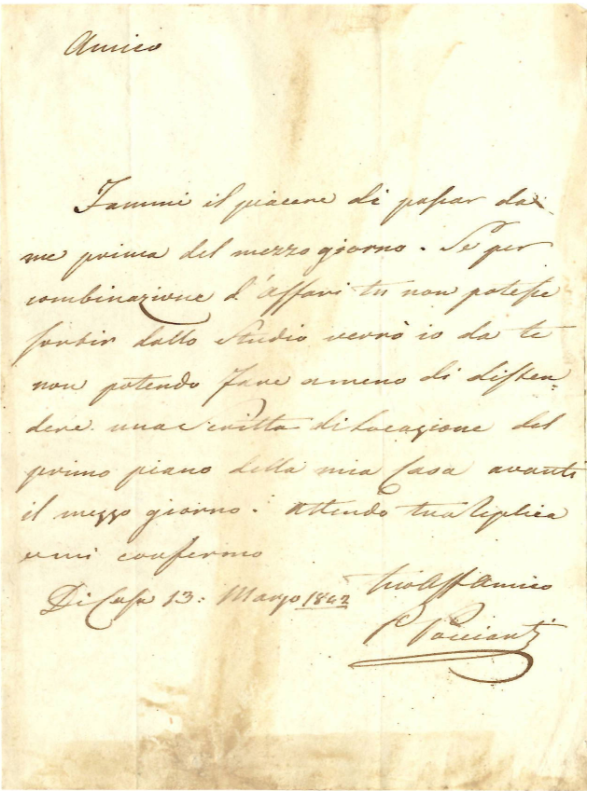 Amico
Fammi il piacere di passar da
me prima del mezzo giorno. Se per
combinazione d'affari tu non potesse
sortir dallo Studio verrò io da te
non potendo fare ameno di disten=
dere una scritta di Locazione del
primo piano della mia Casa avanti
il mezzo giorno. Attendo tua replica
e mi confermo
Di Casa 13: Marzo 1842
Tuo Aff Amico
P Poccianti